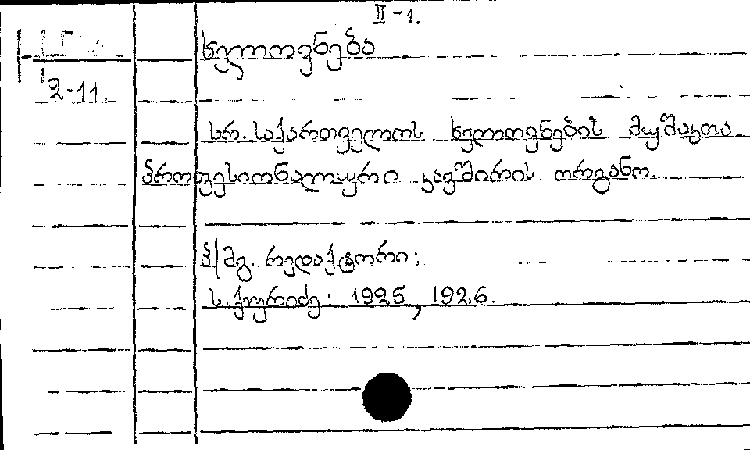 II-1.
ხელოვნება
2-11.
სრ. საქართველოს ხელოვნების მუშაკთა
პროფესიონალური კავშირის ორგანო.
პ/მგ. რედაქტორი:
ს. ქურიძე: 1925, 1926.